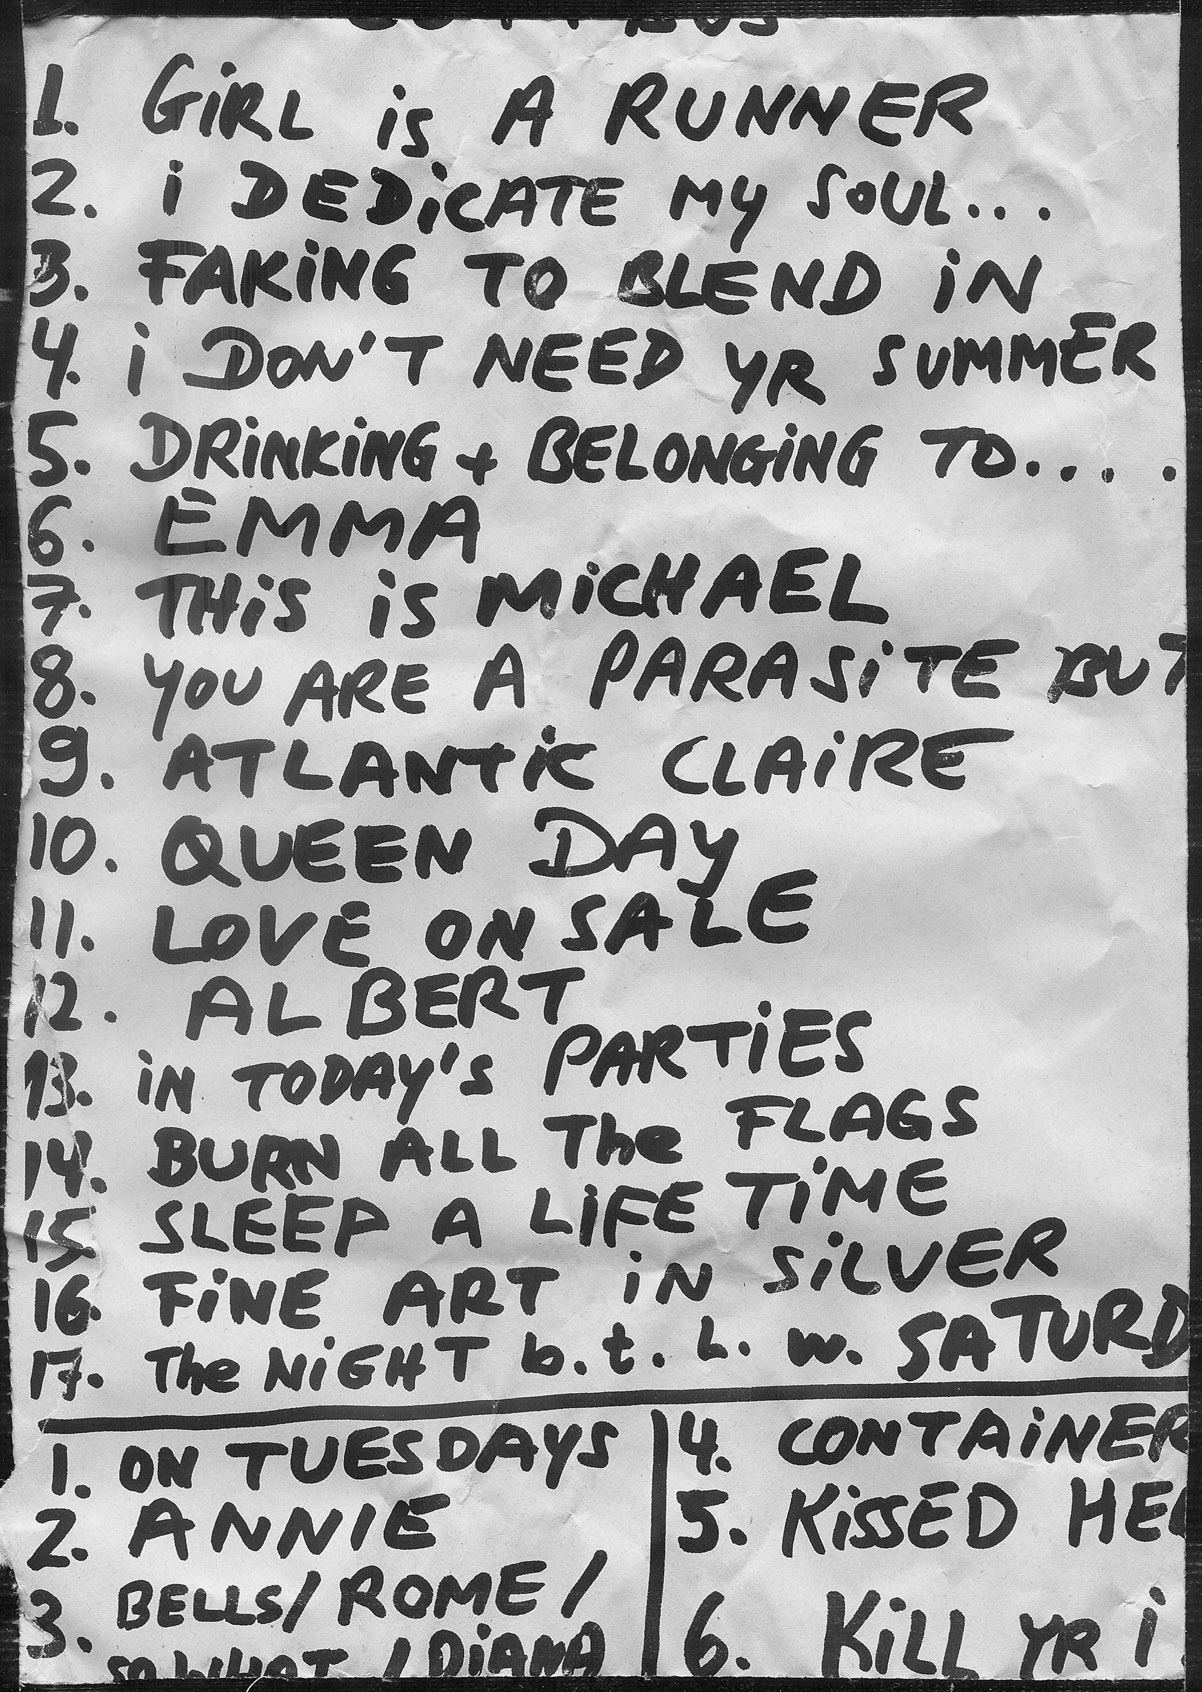 1. GiRL is A RUNNER
2. i DEDiCATE MY SOUL...
3. FAKiNG TO BLEND iN
4. i DON'T NEED YR SUMMER
5. DRiNKiNG + BELONGiNG TO....
6. EMMA
7. THiS iS MiCHAEL
8. YOU ARE A PARASiTE BUT
9. ATLANTiC CLAiRE
10. QUEEN DAY
11. LOVE ON SALE
12. ALBERT
13. iN TODAY'S PARTiES
14. BURN ALL The FLAGS
15. SLEEP A LiFE TiME
16. FiNE ART iN SiLVER
17. The NiGHT b.t.L.w. SATURD
1. ON TUESDAYS
2. ANNIE
3. BELLS/ ROME/
SO WHAT / DiANA
4. CONTAiNER
5. KiSSED HE
6. KiLL YR i